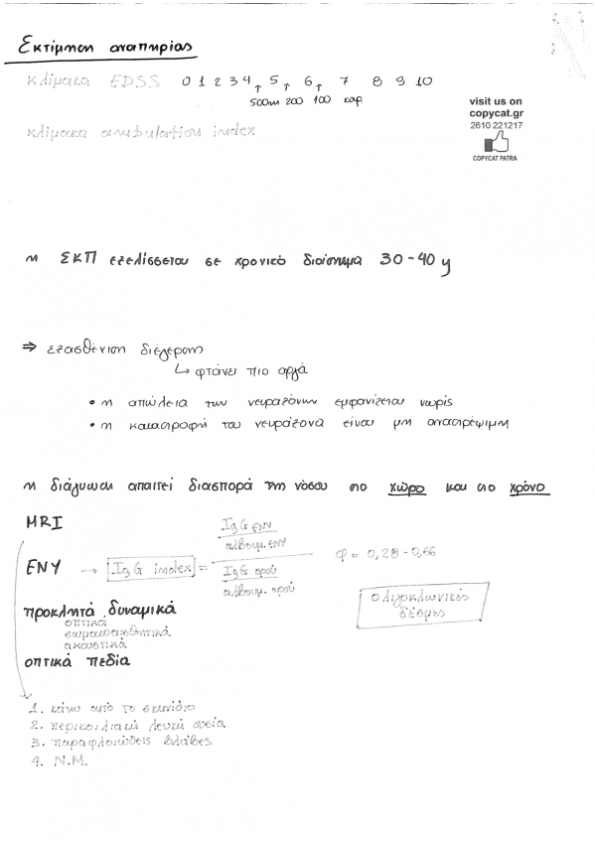 Εκτίμηση αναπηρίας
κλίμακα EDSS 0 1 2 3 4 ↑ 5 ↑ 6 ↑ 7 8 9 10
500m 200 100 καρ
visit us on
copycat.gr
2610 221217
COPYCAT PATRA
κλίμακα ambulation index
η ΣΚΠ εξελίσσεται σε χρονικό διάστημα 30-40 y
⇒ εξασθένιση διέγερσης
↳ φτάνει πιο αργά
• η απώλεια των νευραξόνων εμφανίζεται νωρίς
• η καταστροφή του νευράξονα είναι μη αναστρέψιμη
η διάγνωση απαιτεί διασπορά της νόσου στο χώρο και στο χρόνο
MRI
ΕΝΥ → IgG index = IgG ΕΝΥ / αλβουμ. ΕΝΥ
IgG ορού / αλβουμ. ορού
φ = 0,28-0,66
ολιγοκλωνικές
δέσμες
προκλητά δυναμικά
οπτικά
σωματοαισθητικά
ακουστικά
οπτικά πεδία
1. κάτω από το σκηνίδιο
2. περικοιλιακή λευκή ουσία
3. παραφλοιώδεις βλάβες
4. Ν.Μ.